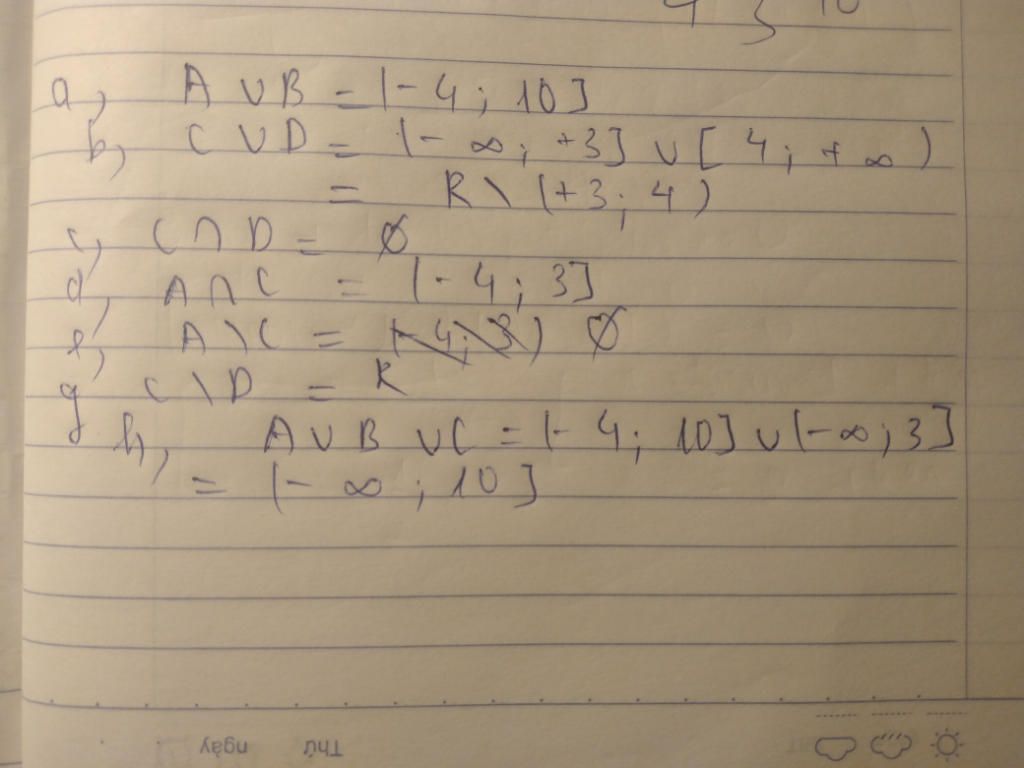 4 3 10
a, A ∪ B = (-4; 10]
b, C ∪ D = (-∞; +3] ∪ [4; +∞)
= R \ (+3; 4)
c, C ∩ D = ∅
d, A ∩ C = (-4; 3]
e, A \ C = (-4; 3) ∅
g C \ D = R
h, A ∪ B ∪ C = (-4; 10] ∪ (-∞; 3]
= (-∞; 10]
Thứ ngày